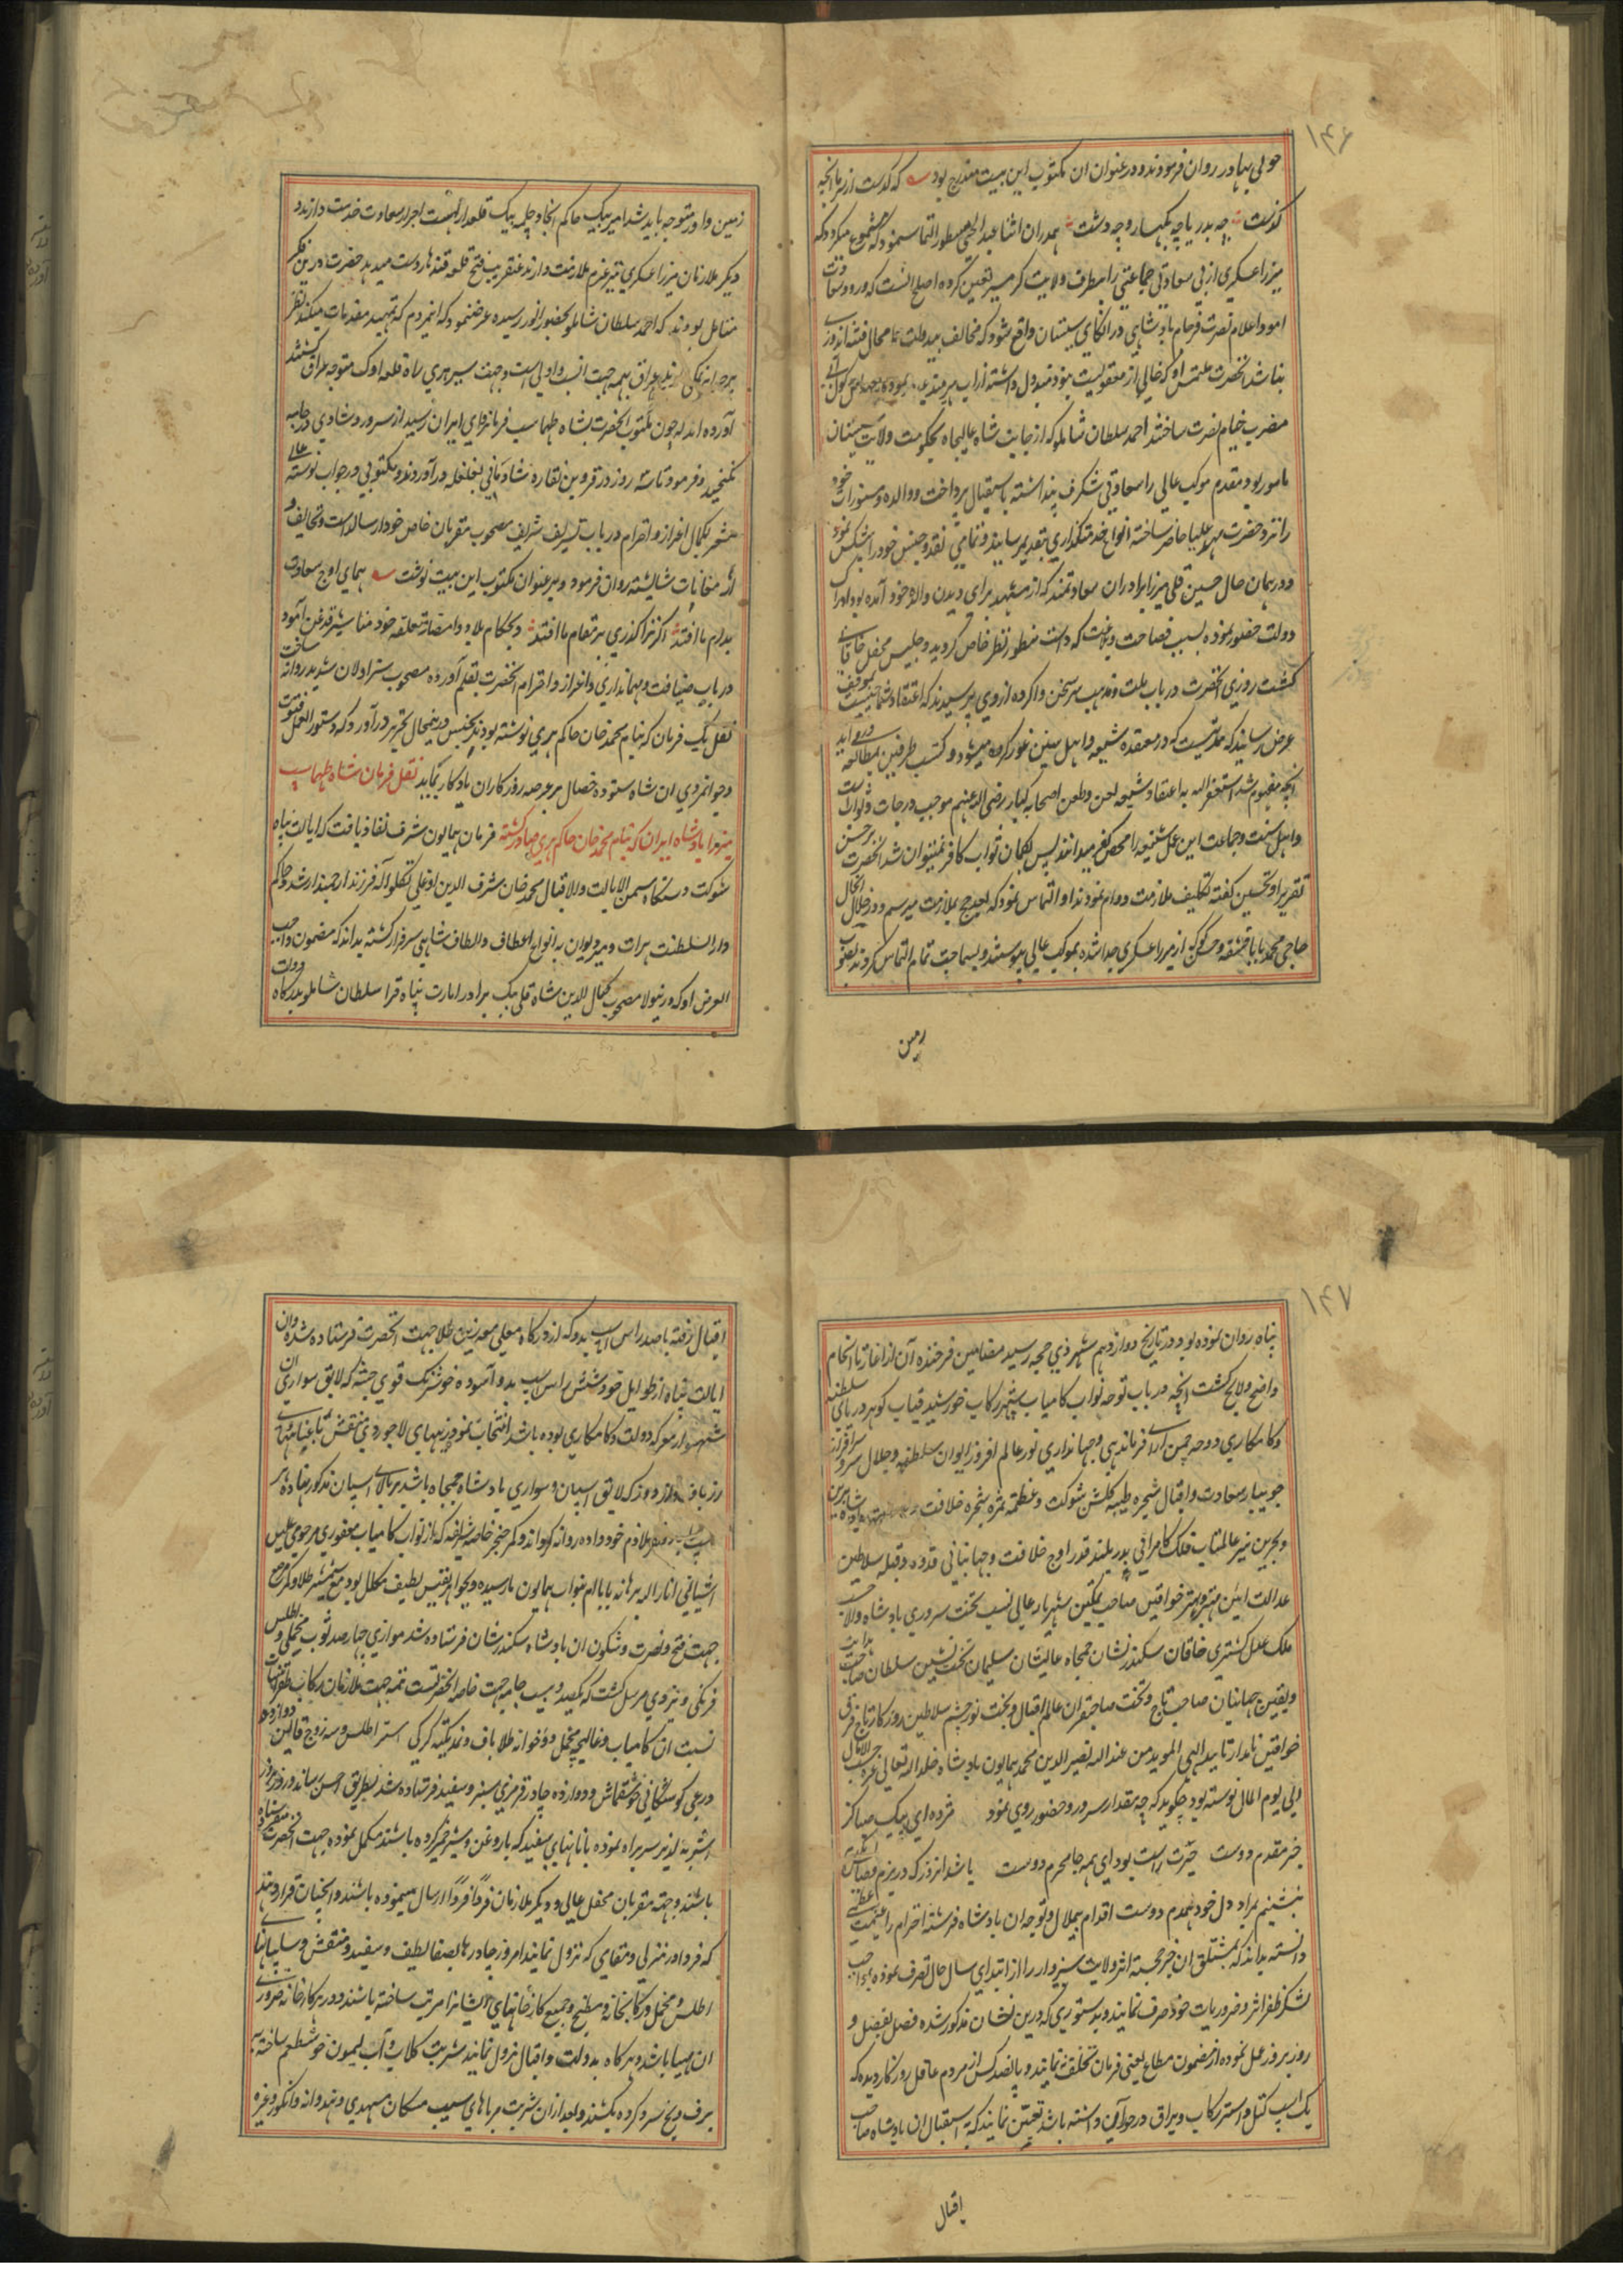 ۱۴۶
حولی بهادر روان فرمودند و در عنوان ان مکتوب این بیت مندرج بود که گذشت از سر ما انچه
گذشت چه بدریا چه بکهسار و چه دشت همدران اثنا عبد الحی مسطور التماس نمود که مسموع میگردد که
میرزا عسکری از بی سعادتی جماعتی را بطرف ولایت گرمسیر تعین کرده اصلح انست که ورود
و اعلام نصرت فرجام پادشاهی در الکای سیستان واقع شود که مخالف بیدولت
انحضرت ملتمس او که خالی از معقولیت نبود مبذول داشته از اب هیرمند
مضرب خیام نصرت ساختند احمد سلطان شاملو که از جانب شاه عالیجاه بحکومت ولایت سیستان
مامور بود مقدم موکب عالی را سعادتی شگرف پنداشته باستقبال پرداخت و والده و مستورات خود
را نزد حضرت مهد علیا حاضر ساخته انواع خدمتگذاری بتقدیم رسانید و تمامی نقد و جنس خود را پیشکش نمود
و در همان حال حسین قلی میرزا برادر ان سعادتمند که از مشهد برای دیدن والده خود آمده بود ادراک
دولت حضور نموده بسبب فصاحت و بلاغت که داشت منظور نظر خاص گردید و جلیس محفل
گشت روزی انحضرت در باب ملت و مذهب سر سخن وا کرده از وی پرسیدند که اعتقاد شما چیست
عرض رسانید که مدتیست که در معتقده شیعه و اهل سنن غور کرده میشود و کتب طرفین بمطالعه
انچه مفهوم شد استغفر الله به اعتقاد شیعه لعن و طعن اصحابه کبار رضی الله عنهم موجب درجات و ثواب است
و اهل سنت و جماعت این عمل شنیعه را محض کفر میدانند پس بگمان ثواب کافر نمیتوان شد انحضرت بر حسن
تقریر او تحسین گفته تکلیف ملازمت دوام نمودند او التماس نمود که بعد حج بملازمت میرسم و در خلال انحال
حاجی محمد بابا قشقه و حسن کوکه از میرزا عسکری جدا شده بموکب عالی پیوستند و بسماجت تمام التماس کردند
زمین
زمین داور متوجه باید شد امیر بیک حاکم انجا و چلمه بیک قلعدار بست احراز سعادت خدمت دارند و
دیگر ملازمان میرزا عسکری نیز عزم ملازمت دارند عنقریب فتح قلعه قندهار دست میدهد حضرت درین فکر
متامل بودند که احمد سلطان شاملو بحضور انور رسیده عرض نمود که انمردم که تمهید مقدمات میکنند
عراق بهمه جهت انسب و اولی است و جهت سیر هری راه قلعه اوک متوجه عراق گشتند
آورده اند که چون مکتوب انحضرت بشاه طهماسب فرمانروای ایران رسید از سرور و شادی در جامه
نگنجید و فرمود تا سه روز در قزوین نقاره شادمانی بغلغله در آوردند و مکتوبی در جواب نوشته
مشعر بکمال اعزاز و احترام در باب تشریف شریف مصحوب مقربان خاص خود ارسال داشت و تحایف و
ارمغانات شایسته روان فرمود و بر عنوان مکتوب این بیت نوشت همای اوج سعادت
بدام ما افتد اگر ترا گذری بر مقام ما افتد و بحکام بلاد و امصار متعلقه خود مناشیر قدغن آمود
در باب ضیافت و مهمانداری و اعزاز و احترام انحضرت بقلم آورده مصحوب سزاولان شدید روانه ساخت
نقل یک فرمان که بنام محمد خان حاکم هری نوشته بودند بجنس درینمحال بتحریر در آورد که دستور العمل فتوت
و جوانمردی ان شاه ستوده خصال بر عرصه روزگاران یادگار بماند نقل فرمان شاه طهماسب
پادشاه ایران که بنام محمد خان حاکم هری صادر گشته فرمان همایون شرف نفاذ یافت که ایالت پناه
شوکت دستگاه شمس الایالت والاقبال محمد خان شرف الدین اوغلی تکلو لله فرزند ارجمند ارشد و حاکم
دار السلطنت هرات و میر دیوان به انواع اعطاف و الطاف شاهی سرفراز گشته بداند که مضمون واجب
العرض او که در نیولا مصحوب کمال الدین شاه قلی بیک برادر امارت پناه قرا سلطان شاملو بدرگاه دولت
۱۴۷
پناه روان نموده بود در تاریخ دوازدهم شهر ذی حجه رسید مضامین فرخنده آن از اغاز تا انجام
واضح و لایح گشت انچه در باب توجه نواب کامیاب سپهر رکاب خورشید قباب گوهر دریای سلطنه
و کامکاری دوحه چمن ارای فرماندهی و جهانداری نور عالم افروز ایوان سلطنه و جلال سرو سرافراز
جویبار سعادت و اقبال شجره طیبه گلشن شوکت و عظمه ثمره شجره خلافت
و بحرین نیر عالمتاب فلک کامرانی بدر بلند قدر اوج خلافت و جهانبانی قدوه و قبله سلاطین
عدالت ایین مهتر و بهتر خواقین صاحب تمکین شهریار عالی نسب تخت سروری پادشاه والا حسب
ملک عدل گستری خاقان سکندر نشان جمجاه عالیشان سلیمان تخت نشین سلطان صاحب
و یقین جهانبان صاحب تاج و تخت صاحبقران عالم اقبال و بخت نور چشم سلاطین روزگار تاج فرق
خواقین نامدار تایید الهی الموید من عند الله نصیر الدین محمد همایون پادشاه خلد الله تعالی
الی یوم المال نوشته بود چگوید که چه مقدار سرور و حضور روی نمود مژده ای پیک صبا کز
خبر مقدم دوست خبرت راست بود ای همه جا محرم دوست باشد انروز که در بزم وصالش
بنشینم بمراد دل خود همدم دوست اقدام بیملال و توجه ان پادشاه فرشته احترام را غنیمت
دانسته بداند که بمشتلق ان خبر خجسته اثر ولایت سبزوار را از ابتدای سال حال تصرف نموده
لشکر ظفر اثر و ضروریات خود صرف نمایند و بدستوری که درین نشان مذکور شده فصل بفصل و
روز بروز عمل نموده از مضمون مطاع یعنی فرمان تخلف ننمایند و پانصد کس از مردم عاقل روزگار دیده که
یک اسپ کتل و استر رکاب و یراق در خور آن داشته باشد تعین نمایند که به استقبال ان پادشاه صاحب
اقبال
اقبال رفته با صد راس اسب بدو که از درگاه معلی معه زین طلا جهت انحضرت فرستاده شده و ان
ایالت پناه از طوایل خود شش راس اسپ بدو آسوده خوشرنگ قوی جثه که لایق سواری ان
شهسوار معرکه دولت و کامکاری بوده باشد انتخاب نموده زینهای لاجوردی منقش با عباییهای
زر بافته و زردوز که لایق اسپان سواری پادشاه جمجاه باشد بر بالای اسپان مذکور نهاده
ملازم خود داده روانه گرداند و کمر خنجر خاصه شریفه که از نواب کامیاب مغفوری مرحومی علیین
اشیانی انار الله برهانه باباام بنواب همایون ما رسیده و بجواهر نفیس لطیف مکلل بود مع شمشیر طلا و کمر مرصع
جهت فتح و نصرت و شگون ان پادشاه سکندرشان فرستاده شد موازی چهار صد ثوب مخملی و اطلس
فرنگی و یزدی مرسل گشت که یکصد و بیست جامه جهت خاصه انحضرتست تتمه جهت ملازمان رکاب
نسبت ان کامیاب و غالیچه مخمل دو خوابه طلا باف و نمد تکیه کرکی استر اطلس و سه زوج قالین دوازده
درعی کوشکانی خوشقماش و دوازده چادر قرمزی سبز و سفید فرستاده شد بطریق احسن رساند و روز بروز
اشربه لذیذ سر براه نموده با نانهای سفید که با روغن و شیر خمیر کرده باشند مکمل نموده جهت انحضرت
باشند و جهت مقربان محفل عالی و دیگر ملازمان فرداً فرداً ارسال مینموده باشند و انچنان قرار دهند
که فردا در منزلی و مقامی که نزول نمایند امروز چادرها بصفا لطیف و سفید و منقش و سایبانهای
اطلس و مخمل و رکابخانه و مطبخ و جمیع کارخانهای ایشانرا مرتب ساخته باشند و در هر کارخانه ضروری
ان مهیا باشد و هر گاه بدولت و اقبال نزول نمایند شربت گلاب و آب لیمون خوشطعم ساخته به
برف و یخ سرد کرده بکشند و بعد ازان شربت مرباهای سیب مشکان مشهدی و هندوانه و انگور و غیره